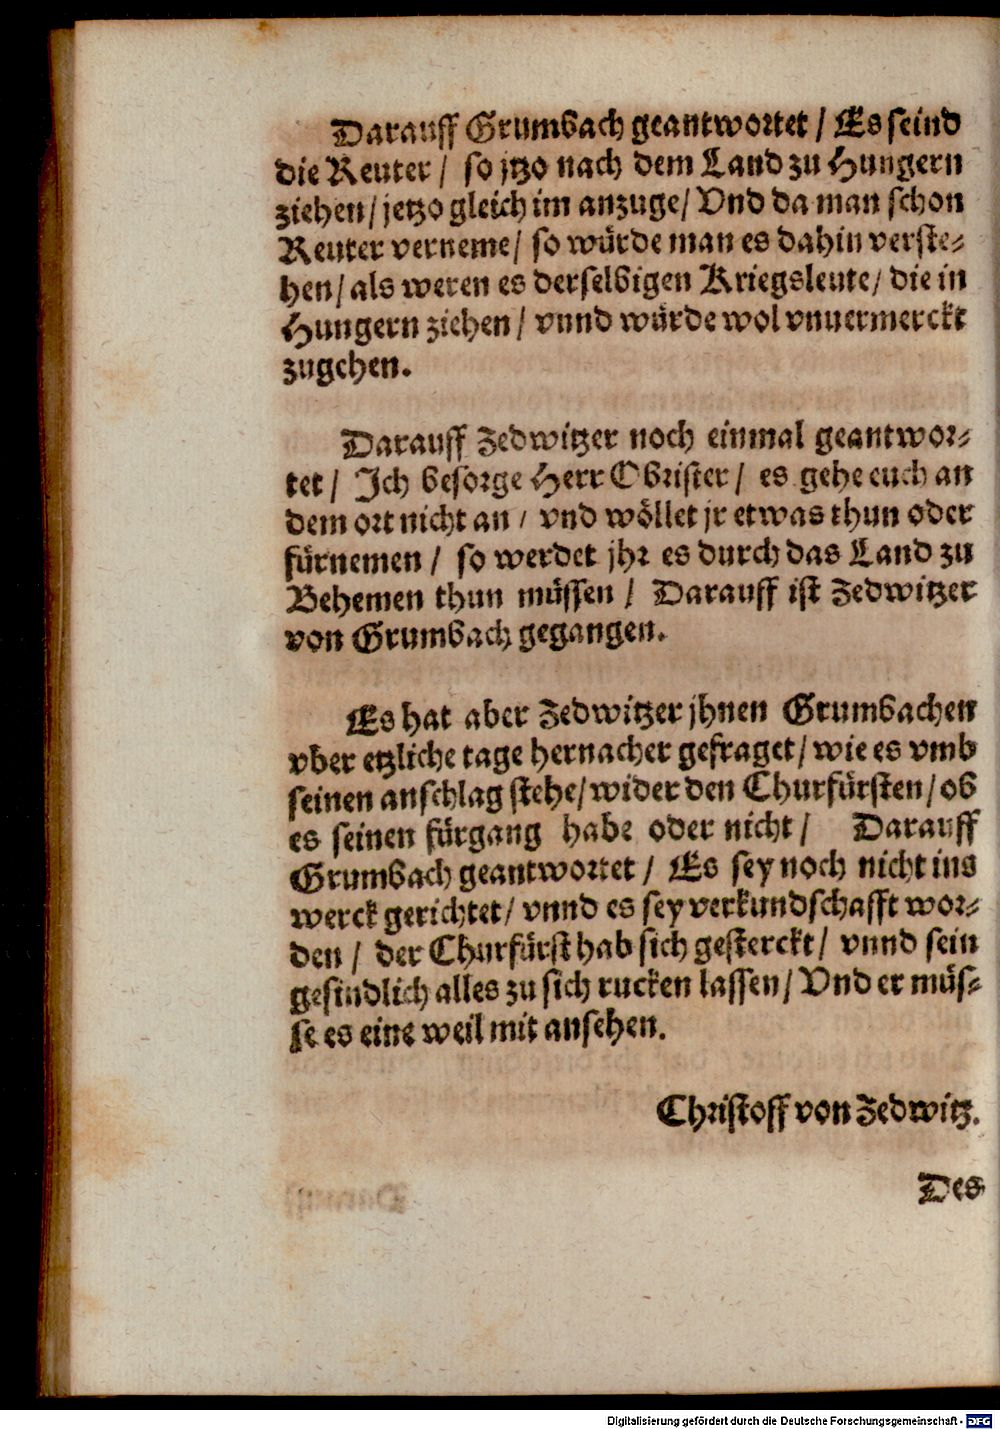 Darauff Grumbach geantwortet / Es seind
die Reuter / so jtzo nach dem Land zu Hungern
ziehen / jetzo gleich im anzuge / Vnd da man schon
Reuter verneme / so würde man es dahin verste-
hen / als weren es derselbigen Kriegsleute / die in
Hungern ziehen / vnnd würde wol vnuermerckt
zugehen.
Darauff Zedwitzer noch einmal geantwor-
tet / Ich besorge Herr Obrister / es gehe euch an
dem ort nicht an / vnd wöllet jr etwas thun oder
fürnemen / so werdet jhr es durch das Land zu
Behemen thun müssen / Darauff ist Zedwitzer
von Grumbach gegangen.
Es hat aber Zedwitzer jhnen Grumbachen
vber etzliche tage hernacher gefraget / wie es vmb
seinen anschlag stehe / wider den Churfürsten / ob
es seinen fürgang habe oder nicht / Darauff
Grumbach geantwortet / Es sey noch nicht ins
werck gerichtet / vnnd es sey verkundschafft wor-
den / der Churfürst hab sich gesterckt / vnnd sein
gesindlich alles zu sich rucken lassen / Vnd er müs-
se es eine weil mit ansehen.
Christoff von Zedwitz.
Des
Digitalisierung gefördert durch die Deutsche Forschungsgemeinschaft - DFG